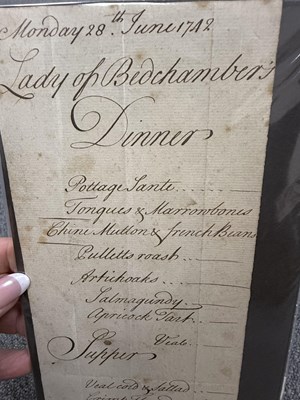 Monday 28th June 1742
Lady of Bedchamber's
Dinner
Pottage Sante
Tongues & Marrowbones
Chine Mutton & french Beans
Pulletts roast
Artichoaks
Salmagundy
Apricock Tart
Supper
Veal cold & Sallad